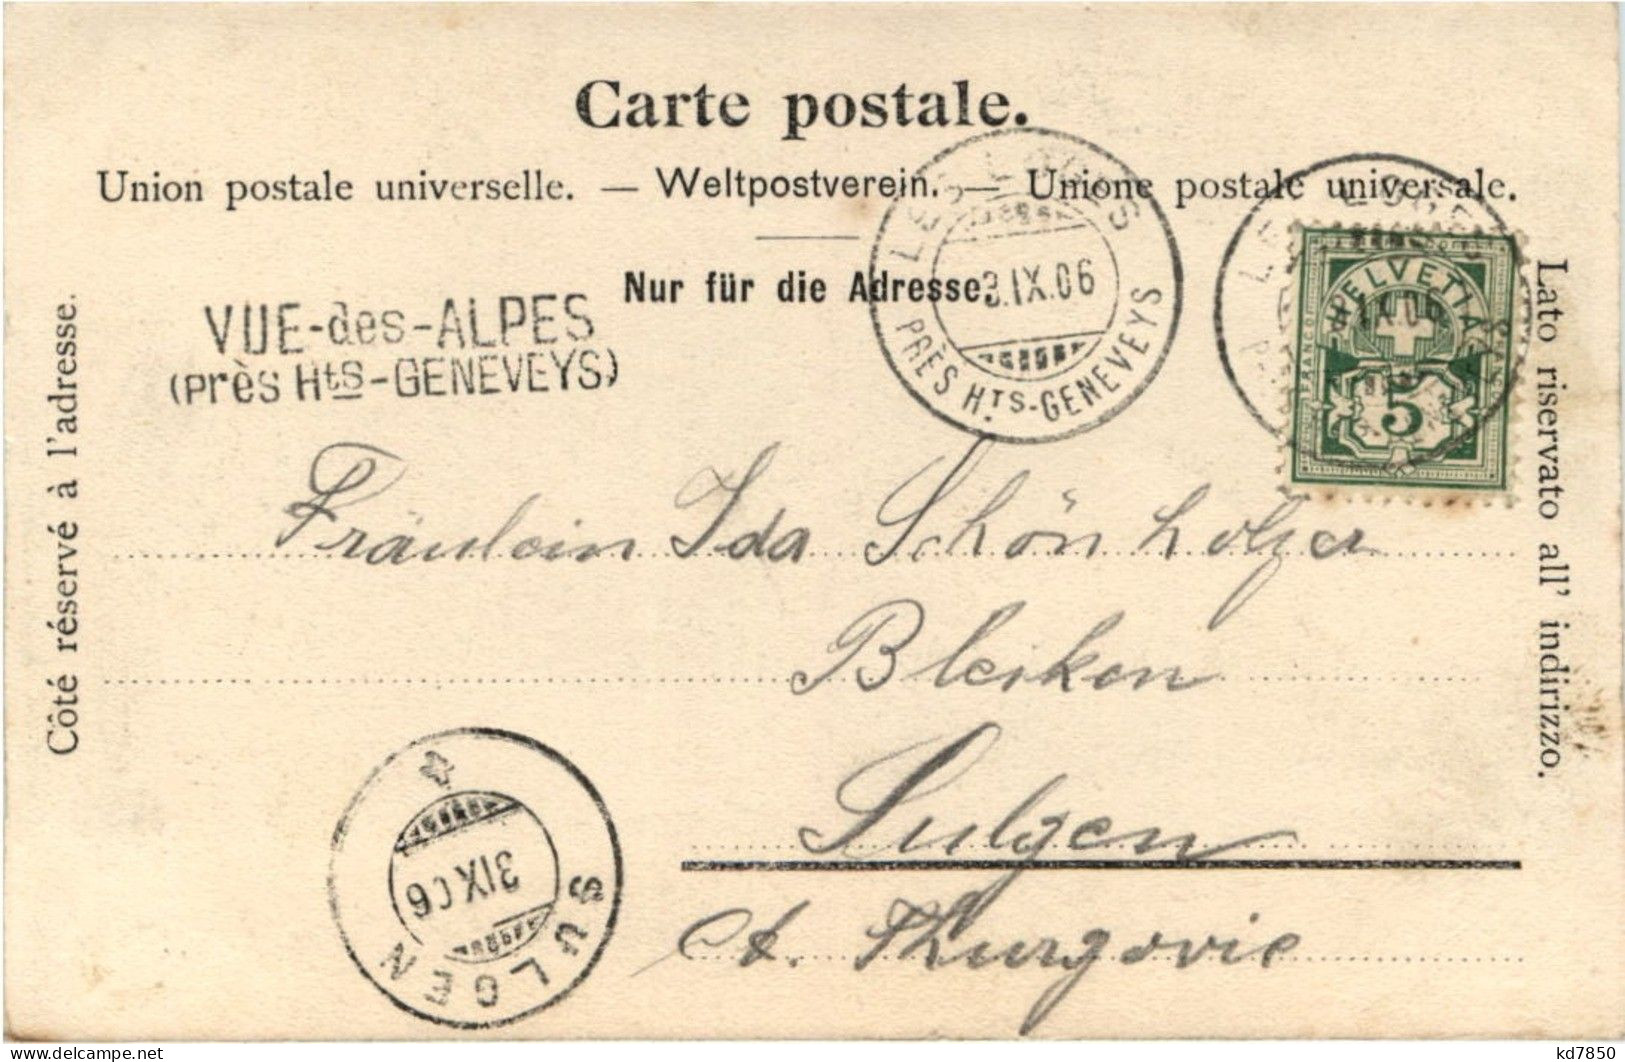 Carte postale.
Union postale universelle. — Weltpostverein. — Unione postale universale.
Nur für die Adresse.
Côté réservé à l'adresse.
Lato riservato all' indirizzo.
VUE-des-ALPES
(Près Hts-GENEVEYS)
LES LOGES
3.IX.06
PRÈS HTS-GENEVEYS
LES LOGES
IX.06
FRANCO
HELVETIA
5
Fräulein Ida Schönholzer
Bleiken
Sulgen
Ct. Thurgovie
SULGEN
3 IX 06
delcampe.net
kd7850